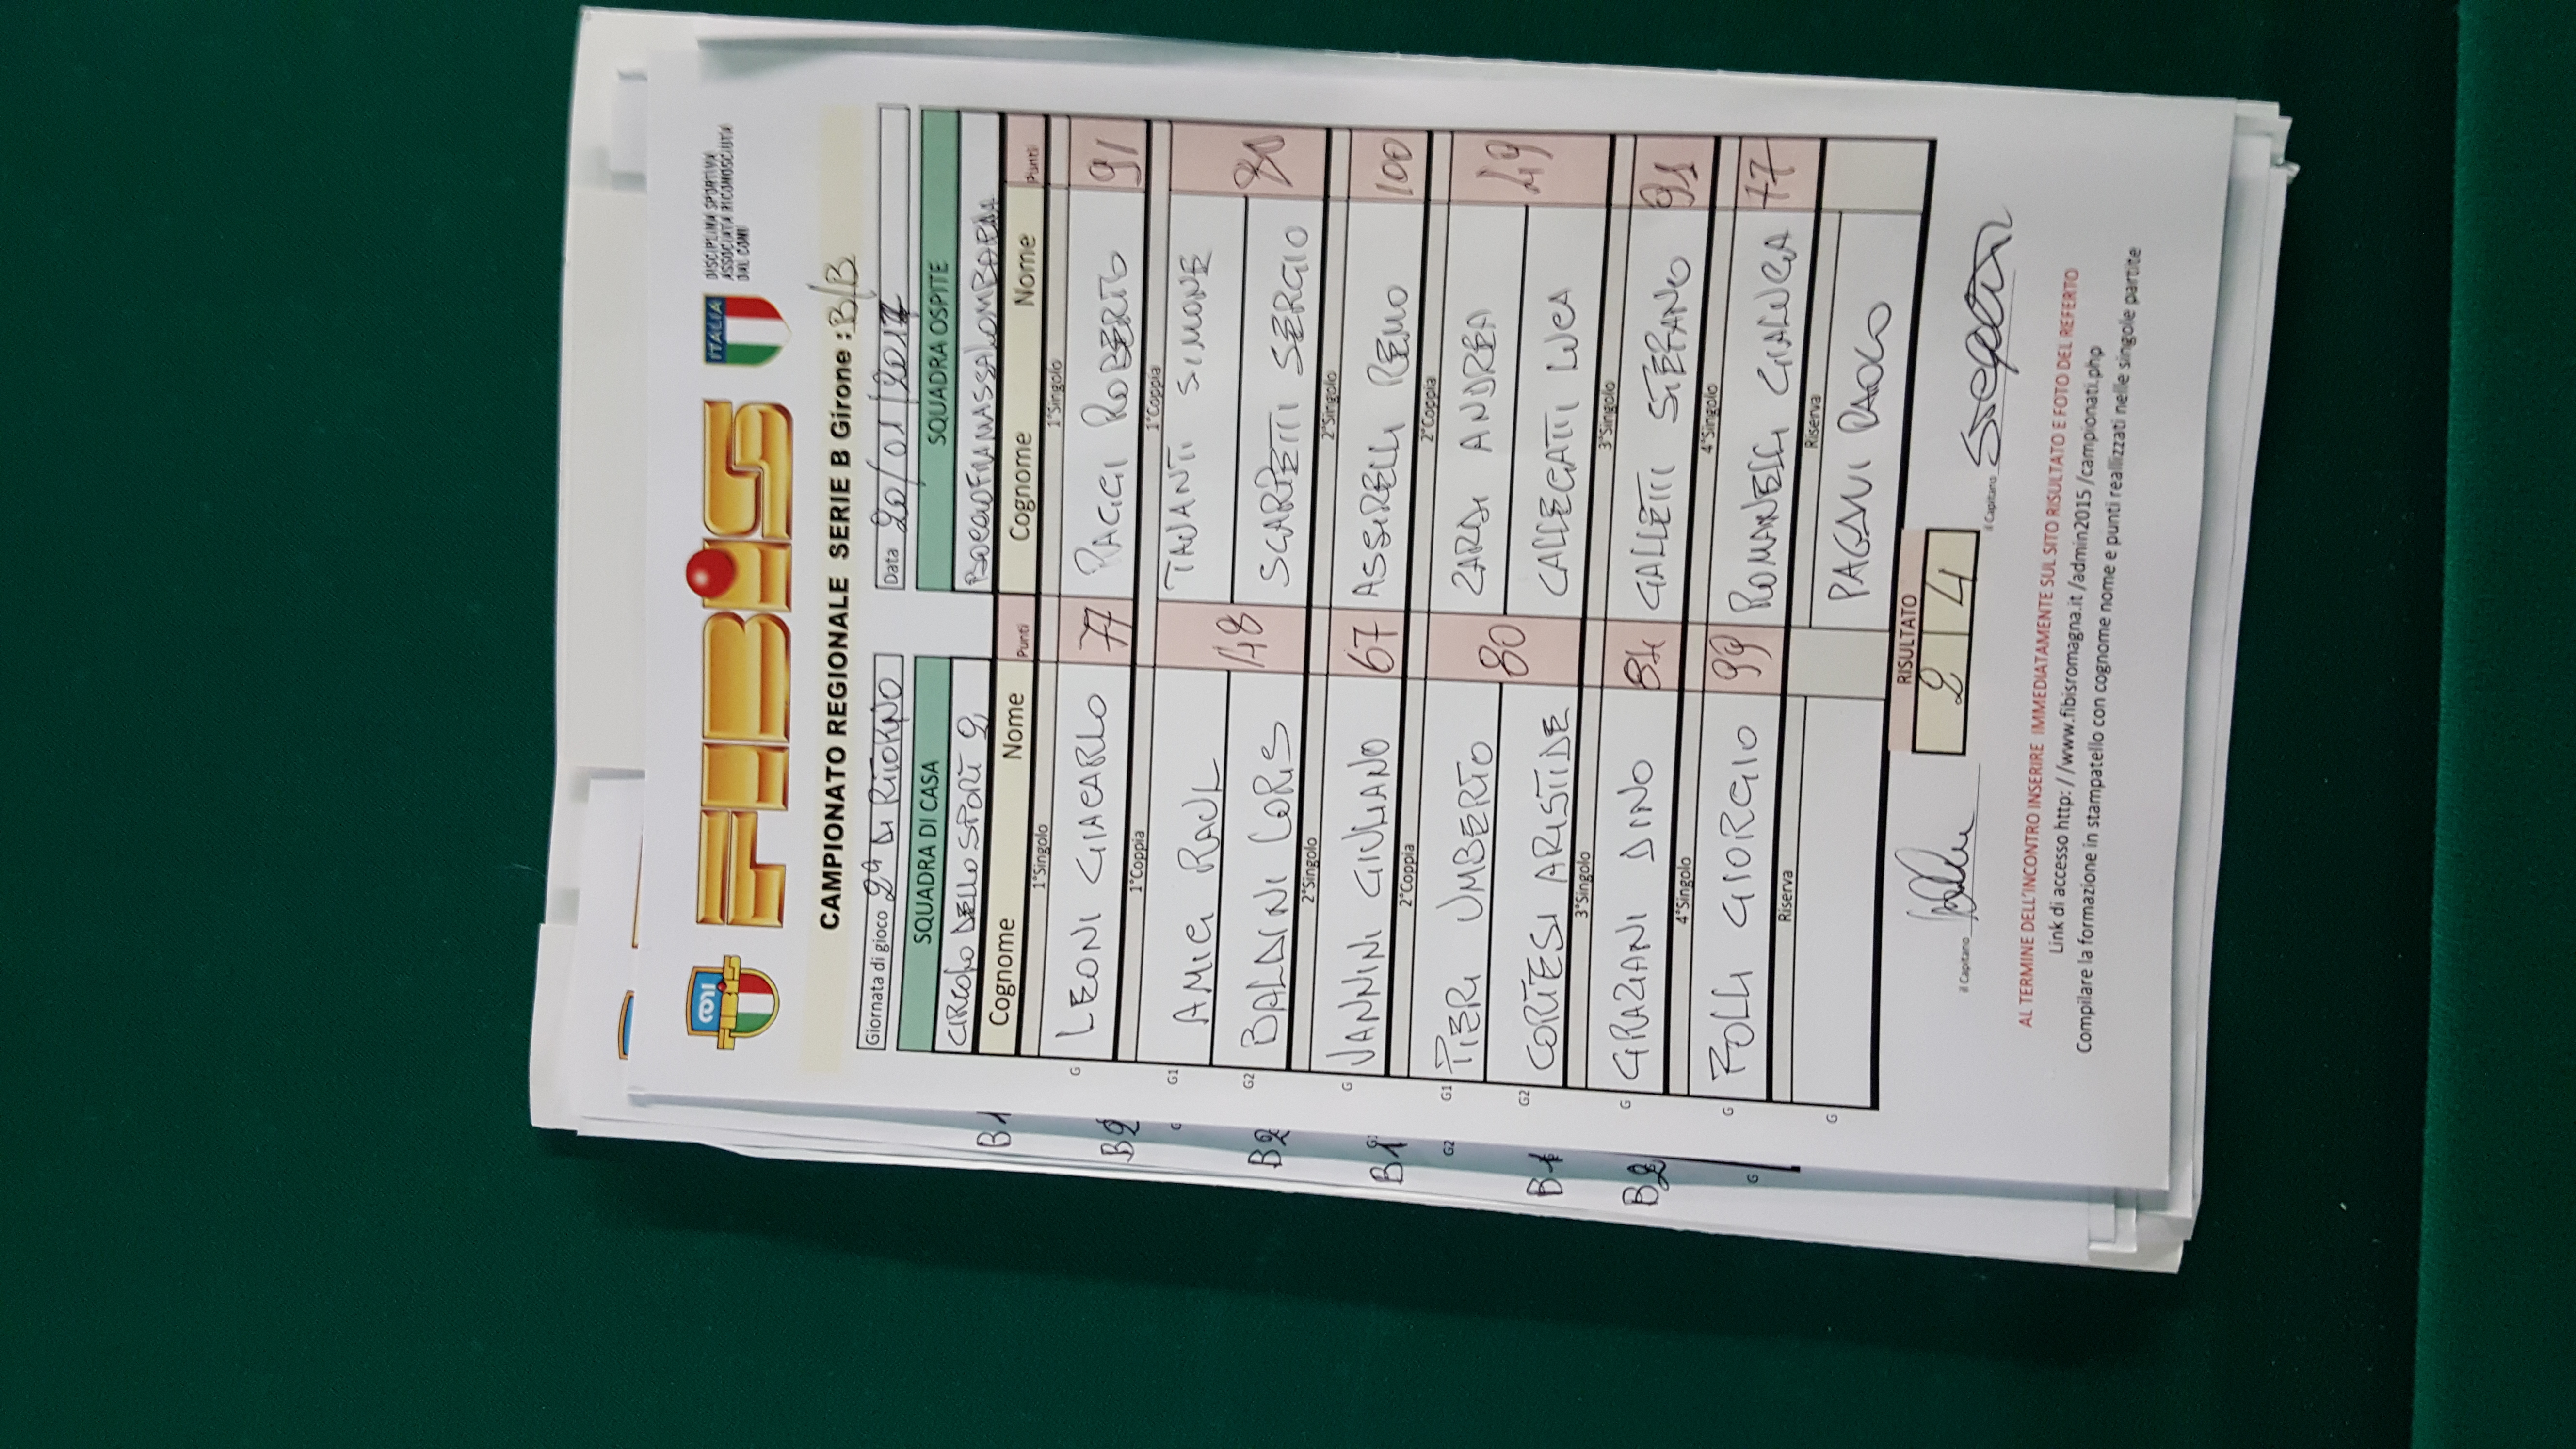 FIBiS
ITALIA
DISCIPLINA SPORTIVA
ASSOCIATA RICONOSCIUTA
DAL CONI
CAMPIONATO REGIONALE SERIE B Girone : B/B
Giornata di gioco 2ª DI RITORNO Data 20/01/2017
SQUADRA DI CASA SQUADRA OSPITE
CIRCOLO DELLO SPORT 2
Cognome Nome Punti Cognome Nome Punti
1°Singolo 1°Singolo
G LEONI GIACARLO 77 PAGGI ROBERTO 91
1°Coppia 1°Coppia
G1 AMICI RAUL TANANTI SIMONE
G2 BALDINI LORIS 48 SCARPETTI SERGIO 80
2°Singolo 2°Singolo
G VANNINI GIULIANO 67 ASSIRELLI REMO 100
2°Coppia 2°Coppia
G1 PIERI UMBERTO ZARDI ANDREA
G2 CORTESI ARISTIDE 80 CALLEGATI LUCA 49
3°Singolo 3°Singolo
G GRAZIANI DINO 84 GALLETTI STEFANO 91
4°Singolo 4°Singolo
G FOLLI GIORGIO 99 ROMANELLI GIANLUCA 77
Riserva Riserva
G PAGANI PAOLO
RISULTATO
2 4
il Capitano il Capitano
AL TERMINE DELL'INCONTRO INSERIRE IMMEDIATAMENTE SUL SITO RISULTATO E FOTO DEL REFERTO
Link di accesso http://www.fibisromagna.it/admin2015/campionati.php
Compilare la formazione in stampatello con cognome nome e punti reallizzati nelle singole partite
B1
B2
G
B2
B1
G2
B1
B2
G